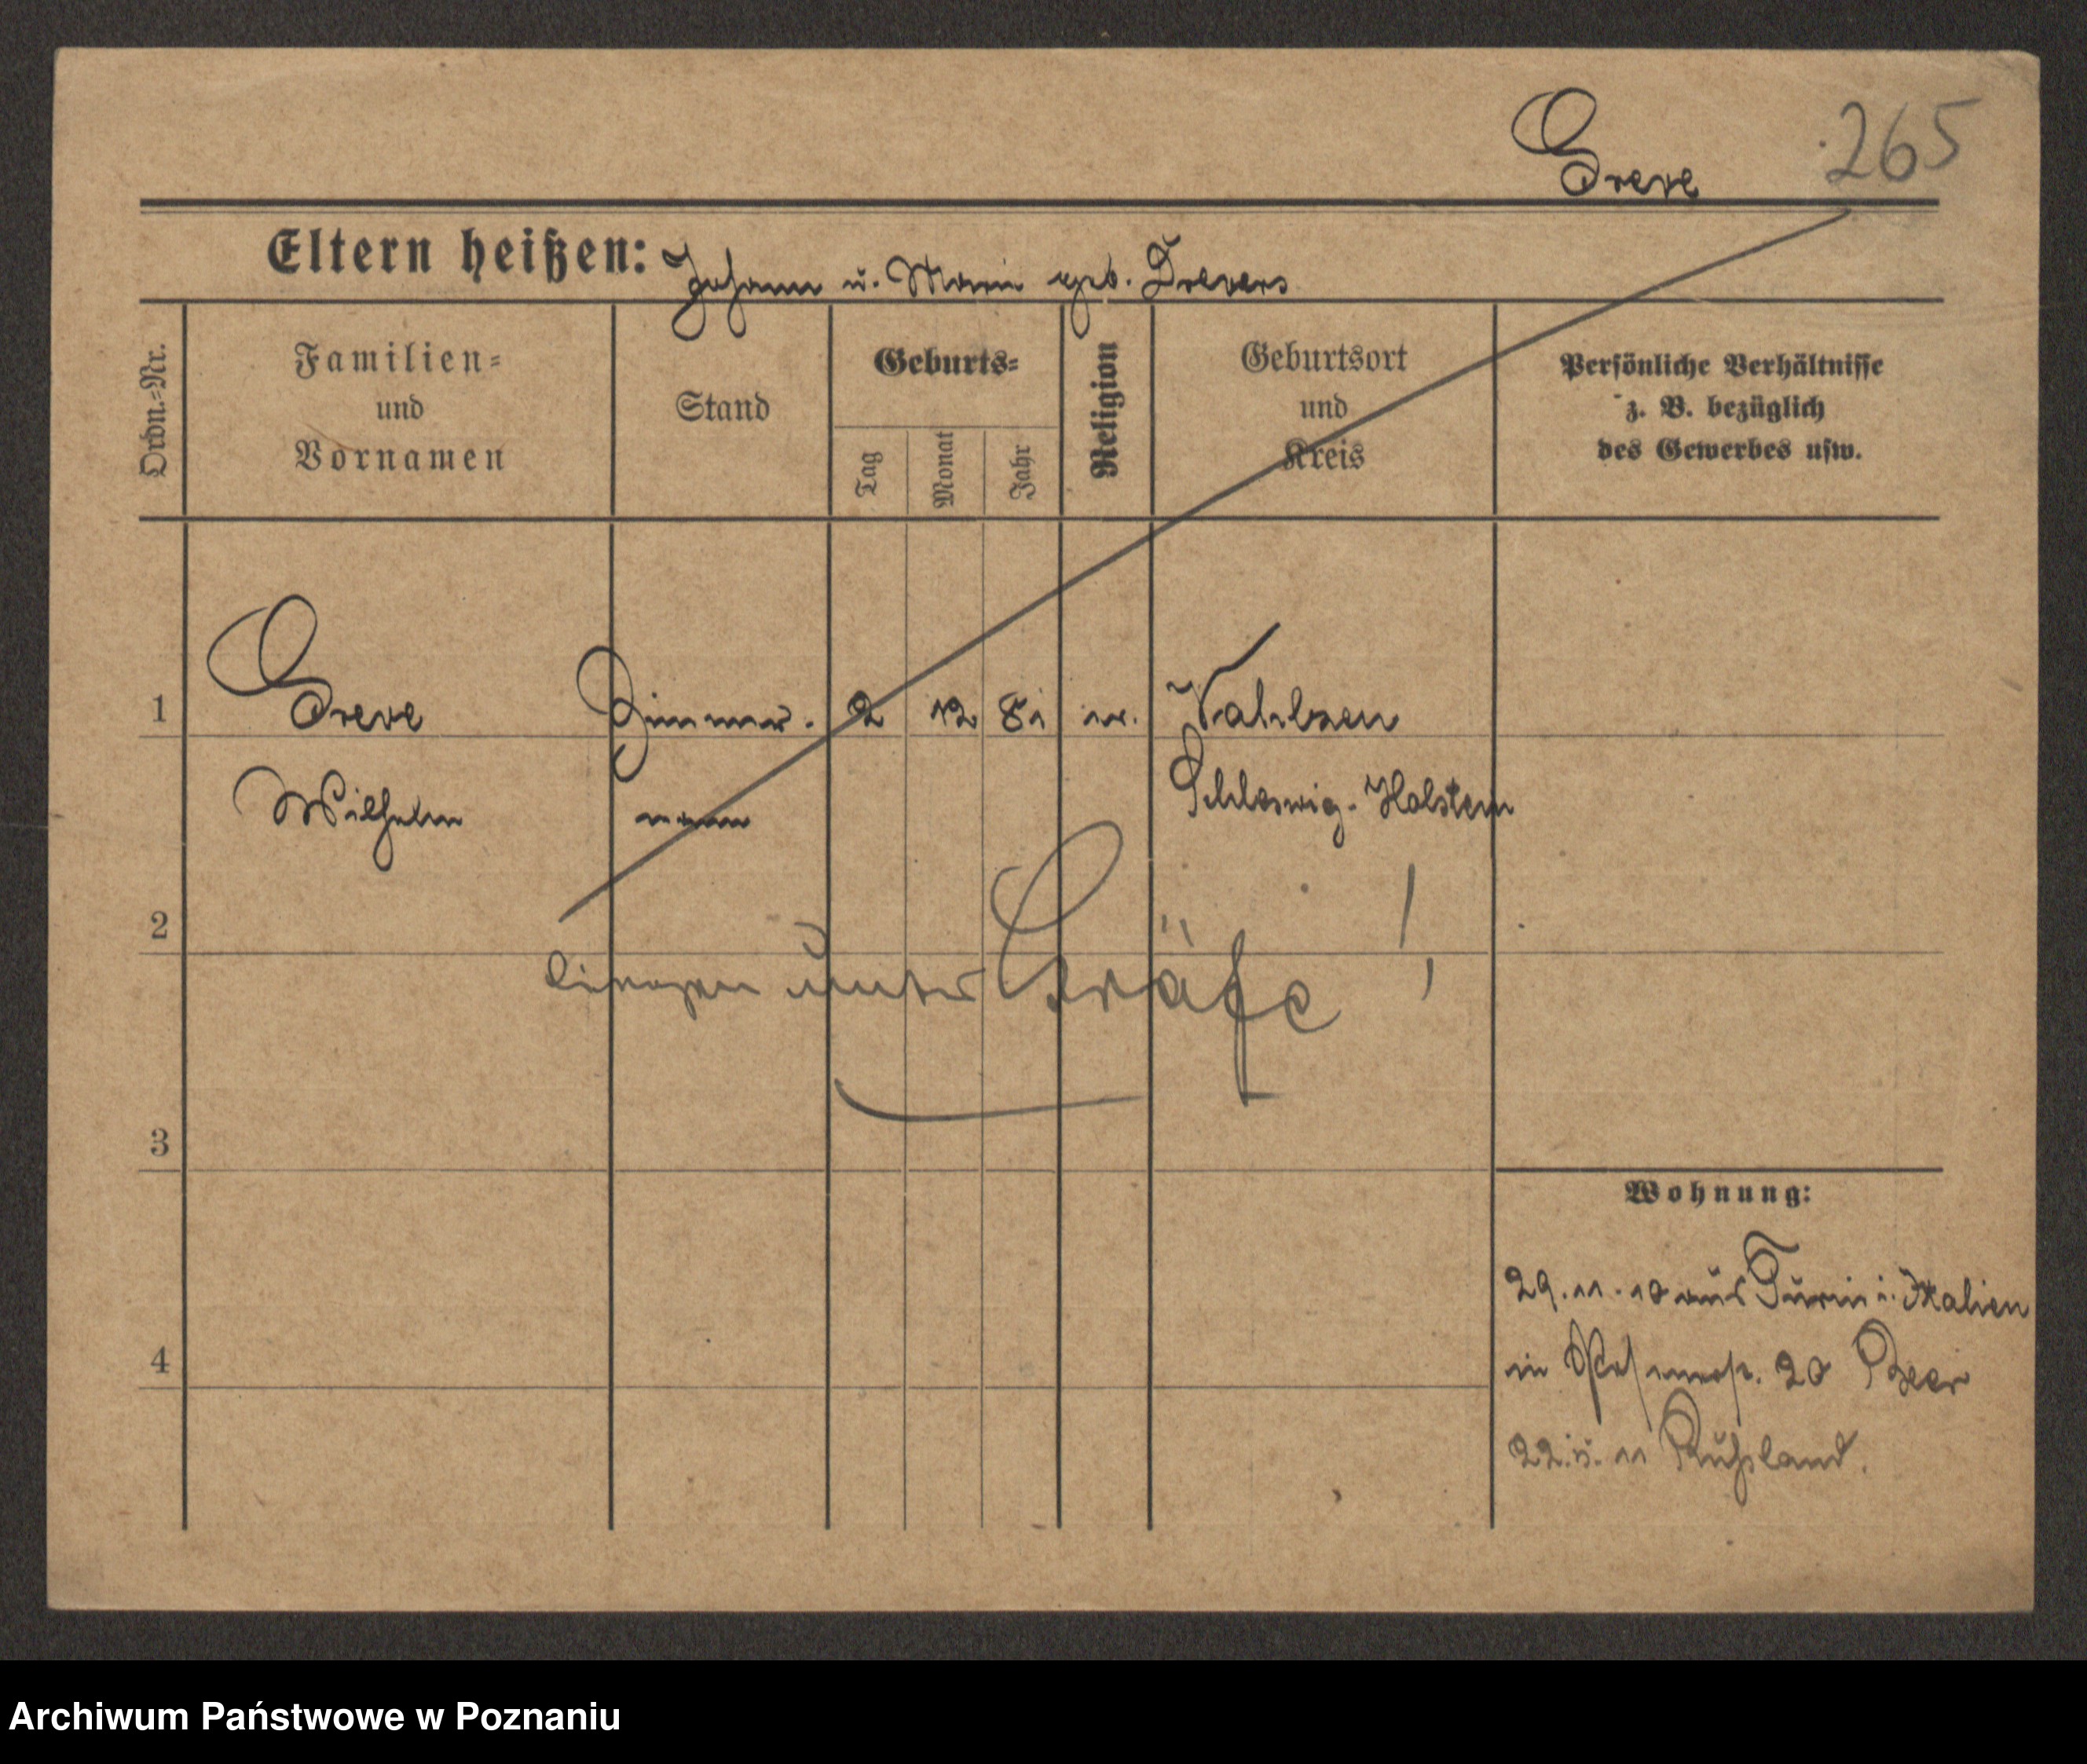 Greve 265
Eltern heißen: Johann u. Marie geb. Drevers
Ordn.-Nr.
Familien-
und
Vornamen
Stand
Geburts-
Tag
Monat
Jahr
Religion
Geburtsort
und
Kreis
Persönliche Verhältnisse
z. B. bezüglich
des Gewerbes usw.
1 Greve Zimmer- 2 12 81 ev. Vahlzen
Wilhelm mann Schleswig-Holstein
2
liegen unter Gräfe!
3
Wohnung:
29.11.10 aus Turin i. Italien
in 20 Beer
4
22. 11 Rußland.
Archiwum Państwowe w Poznaniu